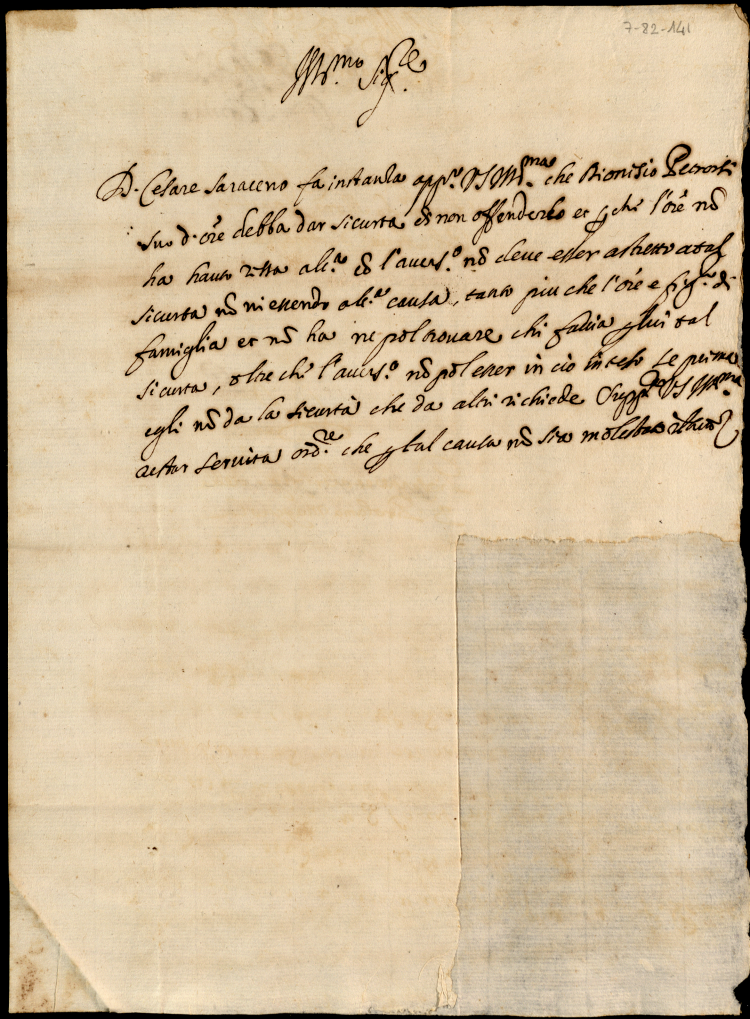 7-82-141
Ill.mo Sig.re
D. Cesare Saraceno fa instanza app.o VS Ill.ma che Dionisio
suo d. ore debba dar sicurta di non offenderlo et p che l'ore nõ
ha hauto rissa alc.a cõ l'auers.o nõ deve esser astretto a tal
sicurta nõ vi essendo alc.a causa, tanto piu che l'ore e fig.o di
famiglia et nõ ha ne pol trovare chi facia p lui tal
sicurta, oltre che l'auers.o nõ pol esser in cio inteso se prima
egli nõ da la sicurtà che da altri richiede supp.a VS Ill.ma
restar servita ord.re che p tal causa nõ sia molestato